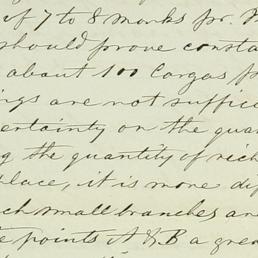 of 7 to 8 Marks pr. M
should prove consta
about 100 Cargas f
ngs are not suffici
certainty on the quan
g the quantity of rich
place, it is more dif
ch small branches an
e points A & B a grea